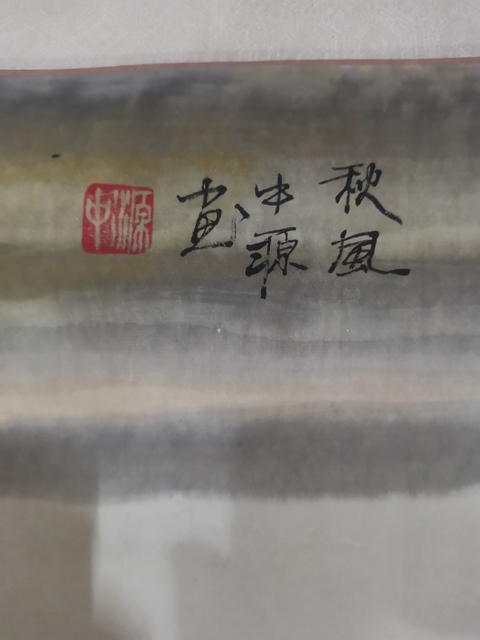 秋風
中源
画
中源